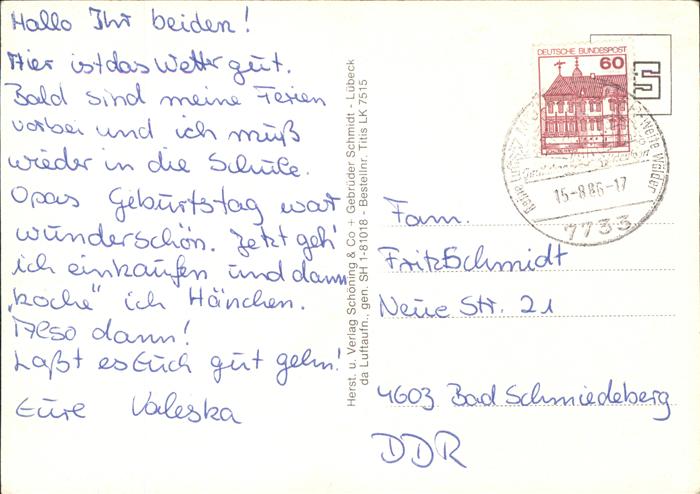 Hallo Ihr beiden!
Hier ist das Wetter gut.
Bald sind meine Ferien
vorbei und ich muß
wieder in die Schule.
Opas Geburtstag war
wunderschön. Jetzt geh'
ich einkaufen und dann
"koche" ich Hänchen.
Also dann!
Laßt es Euch gut gehn!
Eure Valeska
Herst. u. Verlag Schöning & Co + Gebrüder Schmidt - Lübeck
da Luftaufn., gen. SH 1-81018 - Bestellnr. Titis LK 7515
DEUTSCHE BUNDESPOST
60
Reine Luft
weite Wälder
15-8.86-17
7733
Fam.
Fritz Schmidt
Neue Str. 21
4603 Bad Schmiedeberg
DDR